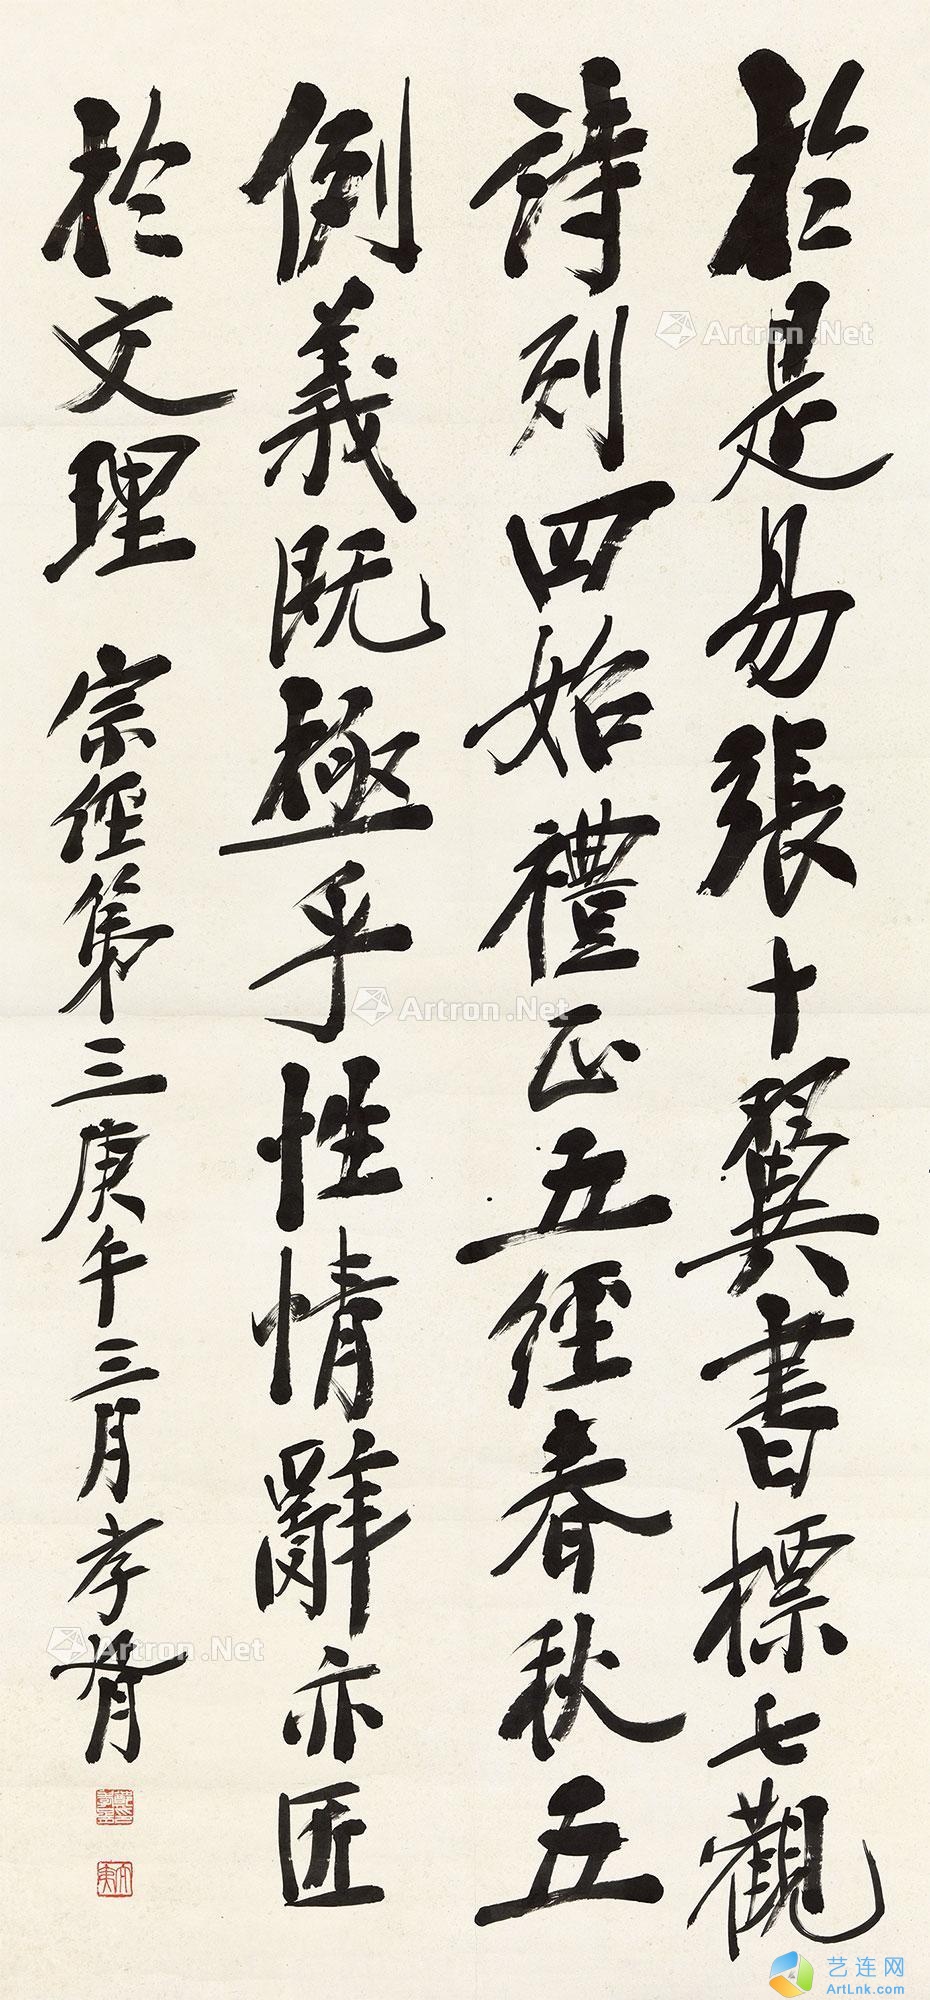 於是易張十翼書標七觀
詩列四始禮正五經春秋五
例義既極乎性情辭亦匠
於文理 宗經第三庚午三月孝胥
Artron.Net
Artron.Net
Artron.Net
艺连网
ArtLnk.com